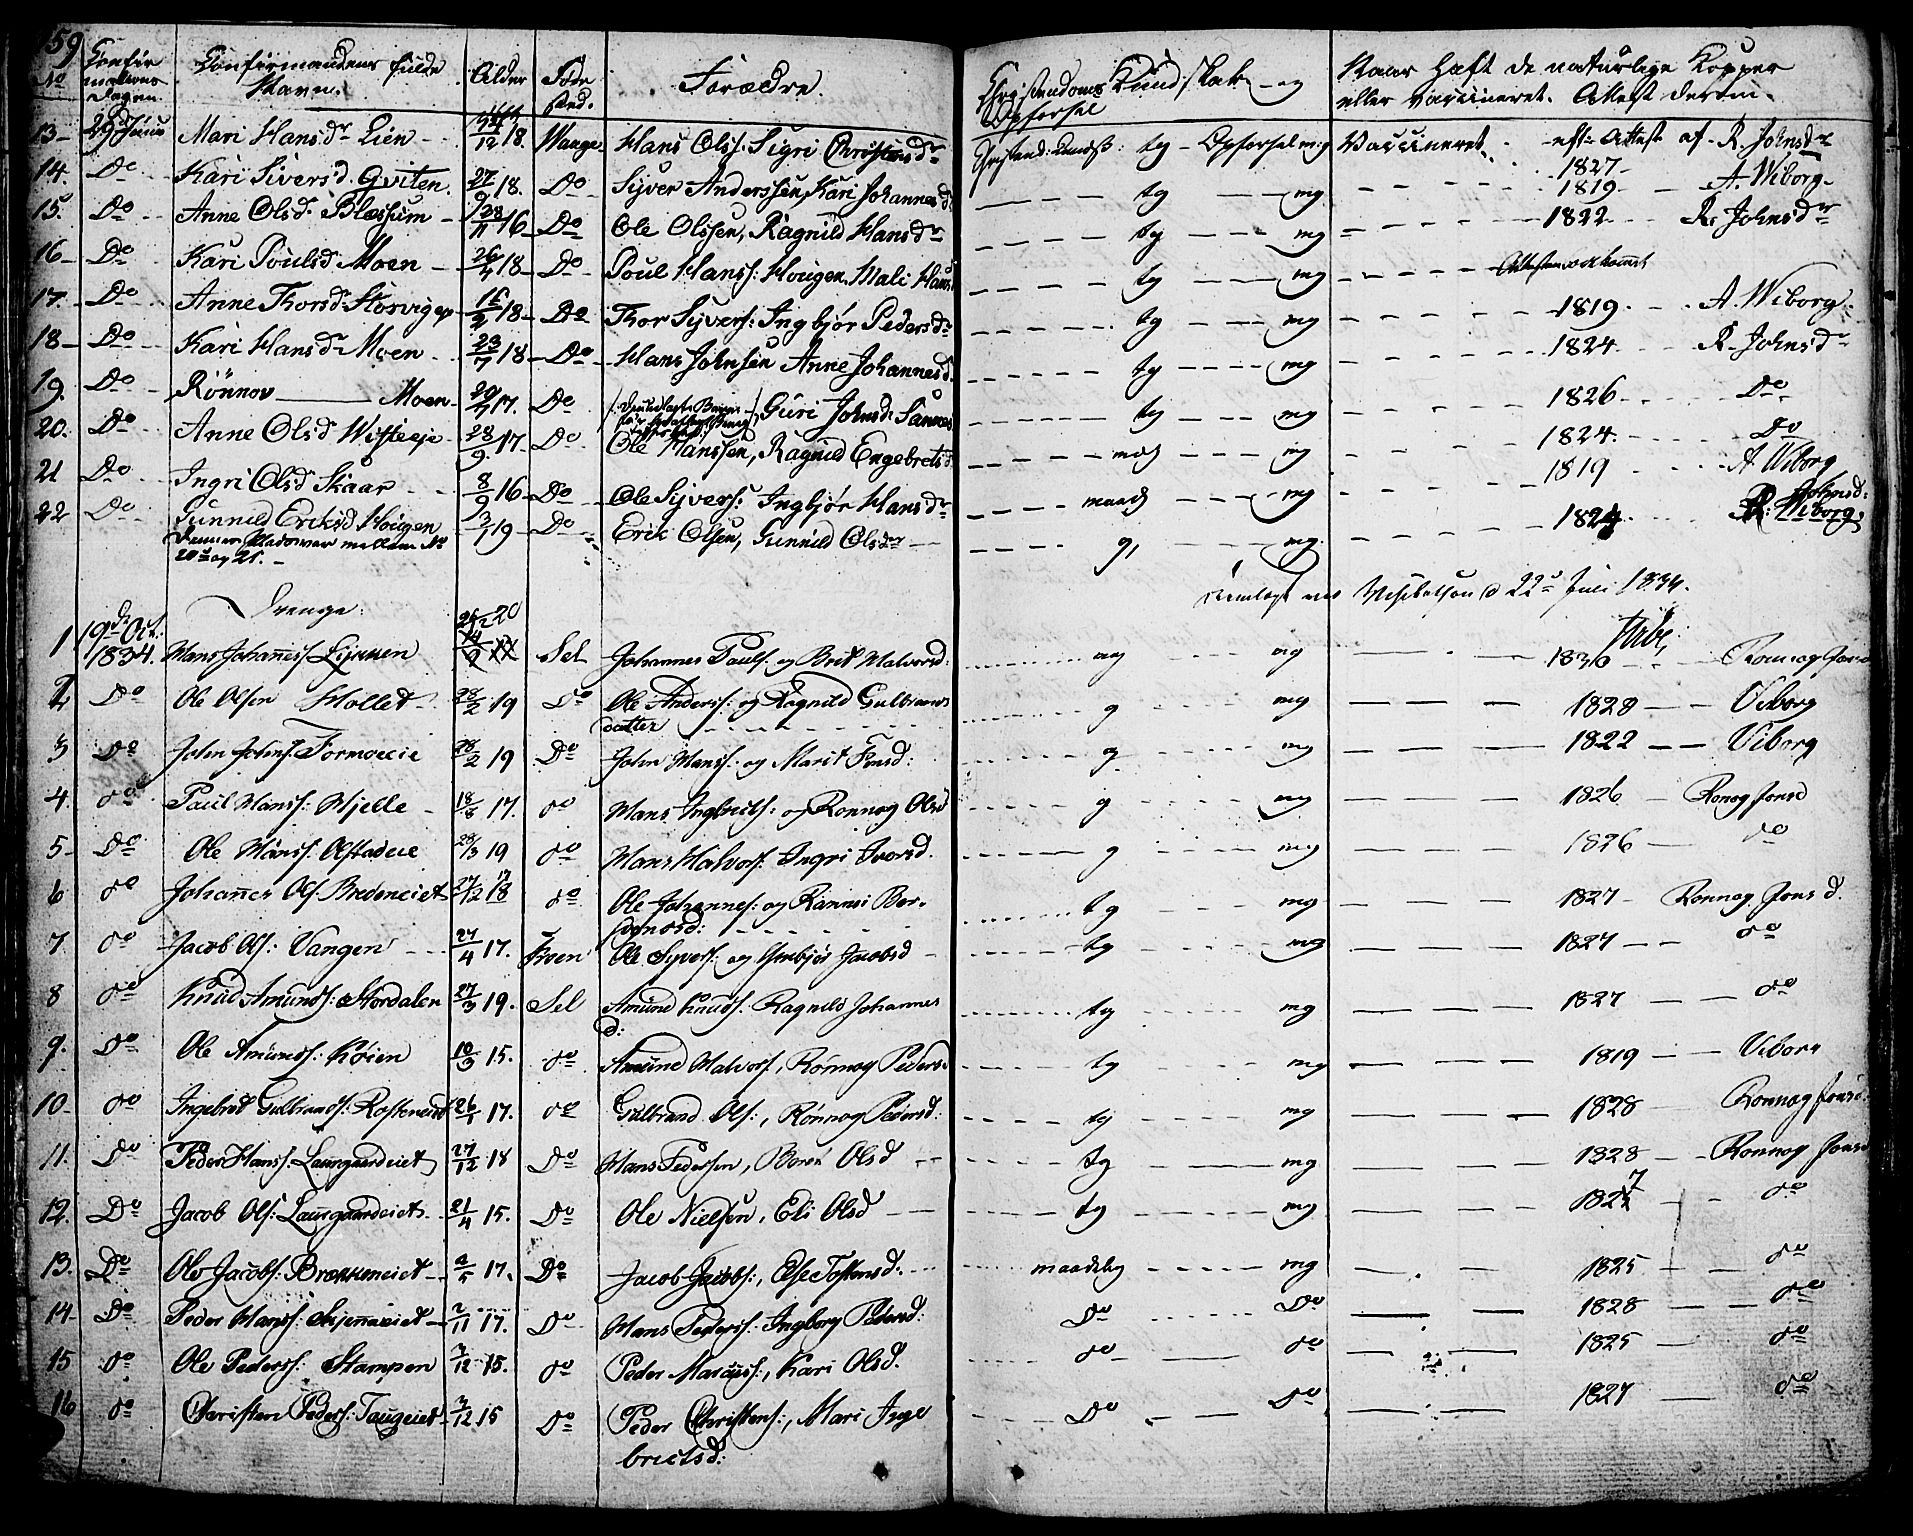 159
No Confirmations Dagen. Confirmandens fulde Navn. Alder Føde sted. Forældre. Christendoms Kundskab og Opførsel Naar haft de naturlige Kopper eller vaccineret. Attest derom.
13 29 Junii Mari Hansdr Lien 12 18. Waage Hans Olss: Sigri Christensdr tg Opførsel mg Vaccineret eft: Attest af R. Johnsdr 1827
14. Do Kari Siversd. Gviten. 27 18. Do Syver Anderssen, Kari Johannesd tg mg 1819 A. Wiborg
15. Do Anne Olsd. Blessum 28/11 16 Do Ole Olssen, Ragnild Hansdr tg mg 1822 R. Johnsdr
16 Do Kari Poulsd. Moen 26/4 18 Do Poul Hanss: Hougen, Mali Hans tg mg
17. Do Anne Thorsd. Storvigen 16/2 18 Do Thor Syvers: Ingbjør Pedersdr tg mg 1819. A. Wiborg
18 Do Kari Hansdr Moen 23/7 18 Do Hans Johnsen Anne Johannesd. tg mg 1824 R. Johnsdr
19. Do Rönnov Moen 29/7 17. Do Guri Johnsd. Sannes tg mg 1826 Do
20. Do Anne Olsd 28/9 17 Do Ole Hanssen, Ragnild Engebretsd. mg 1824. Do
21 Do Ingri Olsd Skaar 8/9 16 Do Ole Syvers: Ingbjør Hansdr maad mg 1819 A Wiborg
22 Do Gunnild Eriksd Hougen 3/1 19 Do Erik Olsen, Gunnild Olsdr g, mg. 1824 R: Johnsd:
Dennes Plads var mellem No 20 og 21.
Fremlagt ved Visitatsen d 22de Juli 1834.
Drenge.
1 19de Oct: 1834. Hans Johaness 20 Sel Johannes Pauls: og Brit Halvorsd: mg mg 1830 Ronnog Jons
2 Do Ole Olsen Hollet 28/2 19 Do Ole Anderss: og Ragnild Gulbrands datter g mg 1828 Viborg
3 Do John Johns. Formoeie 28/2 19 Do John Hanss: og Marit Finsd: g mg 1822 Viborg
4. do Paul Hanss: Hjelle 18/8 17. do Hans Ingbrits: og Ronnog Olsd g mg 1826 Ronog Jonsd
5 Do Ole Hanss: 28/3 19 do Hans Halvors. Ingri Ivarsd. g mg 1826 do
6 do Johannes Ols. Bredeneiet 27/12 18 do Ole Johannes: og Rannei tg mg 1827 Ronnog Jonsd.
7. do Jacob Ols: Vangen 27/4 17. Froen Ole Syvers: og Jacobsd tg mg 1827 do
8 do Knud Amunds: Stordalen 27/3 19. Sel Amund Knuds. Ragnild Johannes d: tg mg 1827 do
9. Do Ole Amunds: Köien 10/3 15. do Amund Halvors., Rönnog Peders. tg mg 1819 Viborg
10 do Ingebret Gulbrands: Rosteneiet 26/1 17. do Gulbrand Ols:, Rönnog Pedersd: tg mg 1828 Ronnog Jonsd:
11. Do Peder Hanss. Laurgaardeiet 27/12 18 Do Hans Pederssen, Olsd tg mg 1828 Ronnog Jonsd
12. Do Jacob Ols: Laurgaardeiet 21/4 15. Do Ole Nielsen, Eli Olsd tg mg 1827 do
13. Do Ole Jacobs: Brækkeneiet 2/5 17. Do Jacob Jacobs:, Else Tostensd. maadelig mg 1825 do
14 Do Peder Hanss: 2/11 17. Do Hans Pederss: Ingborg Pedersd: Do Do 1828 do
15 do Ole Pederss: Stampen 7/12 15. do Peder Marcuss:, Kari Olsd. do do 1825 do
16 do Christen Peders: Taugeiet 3/12 15 Do Peder Christens:, Mari Inge brietsd: Do Do 1827 do